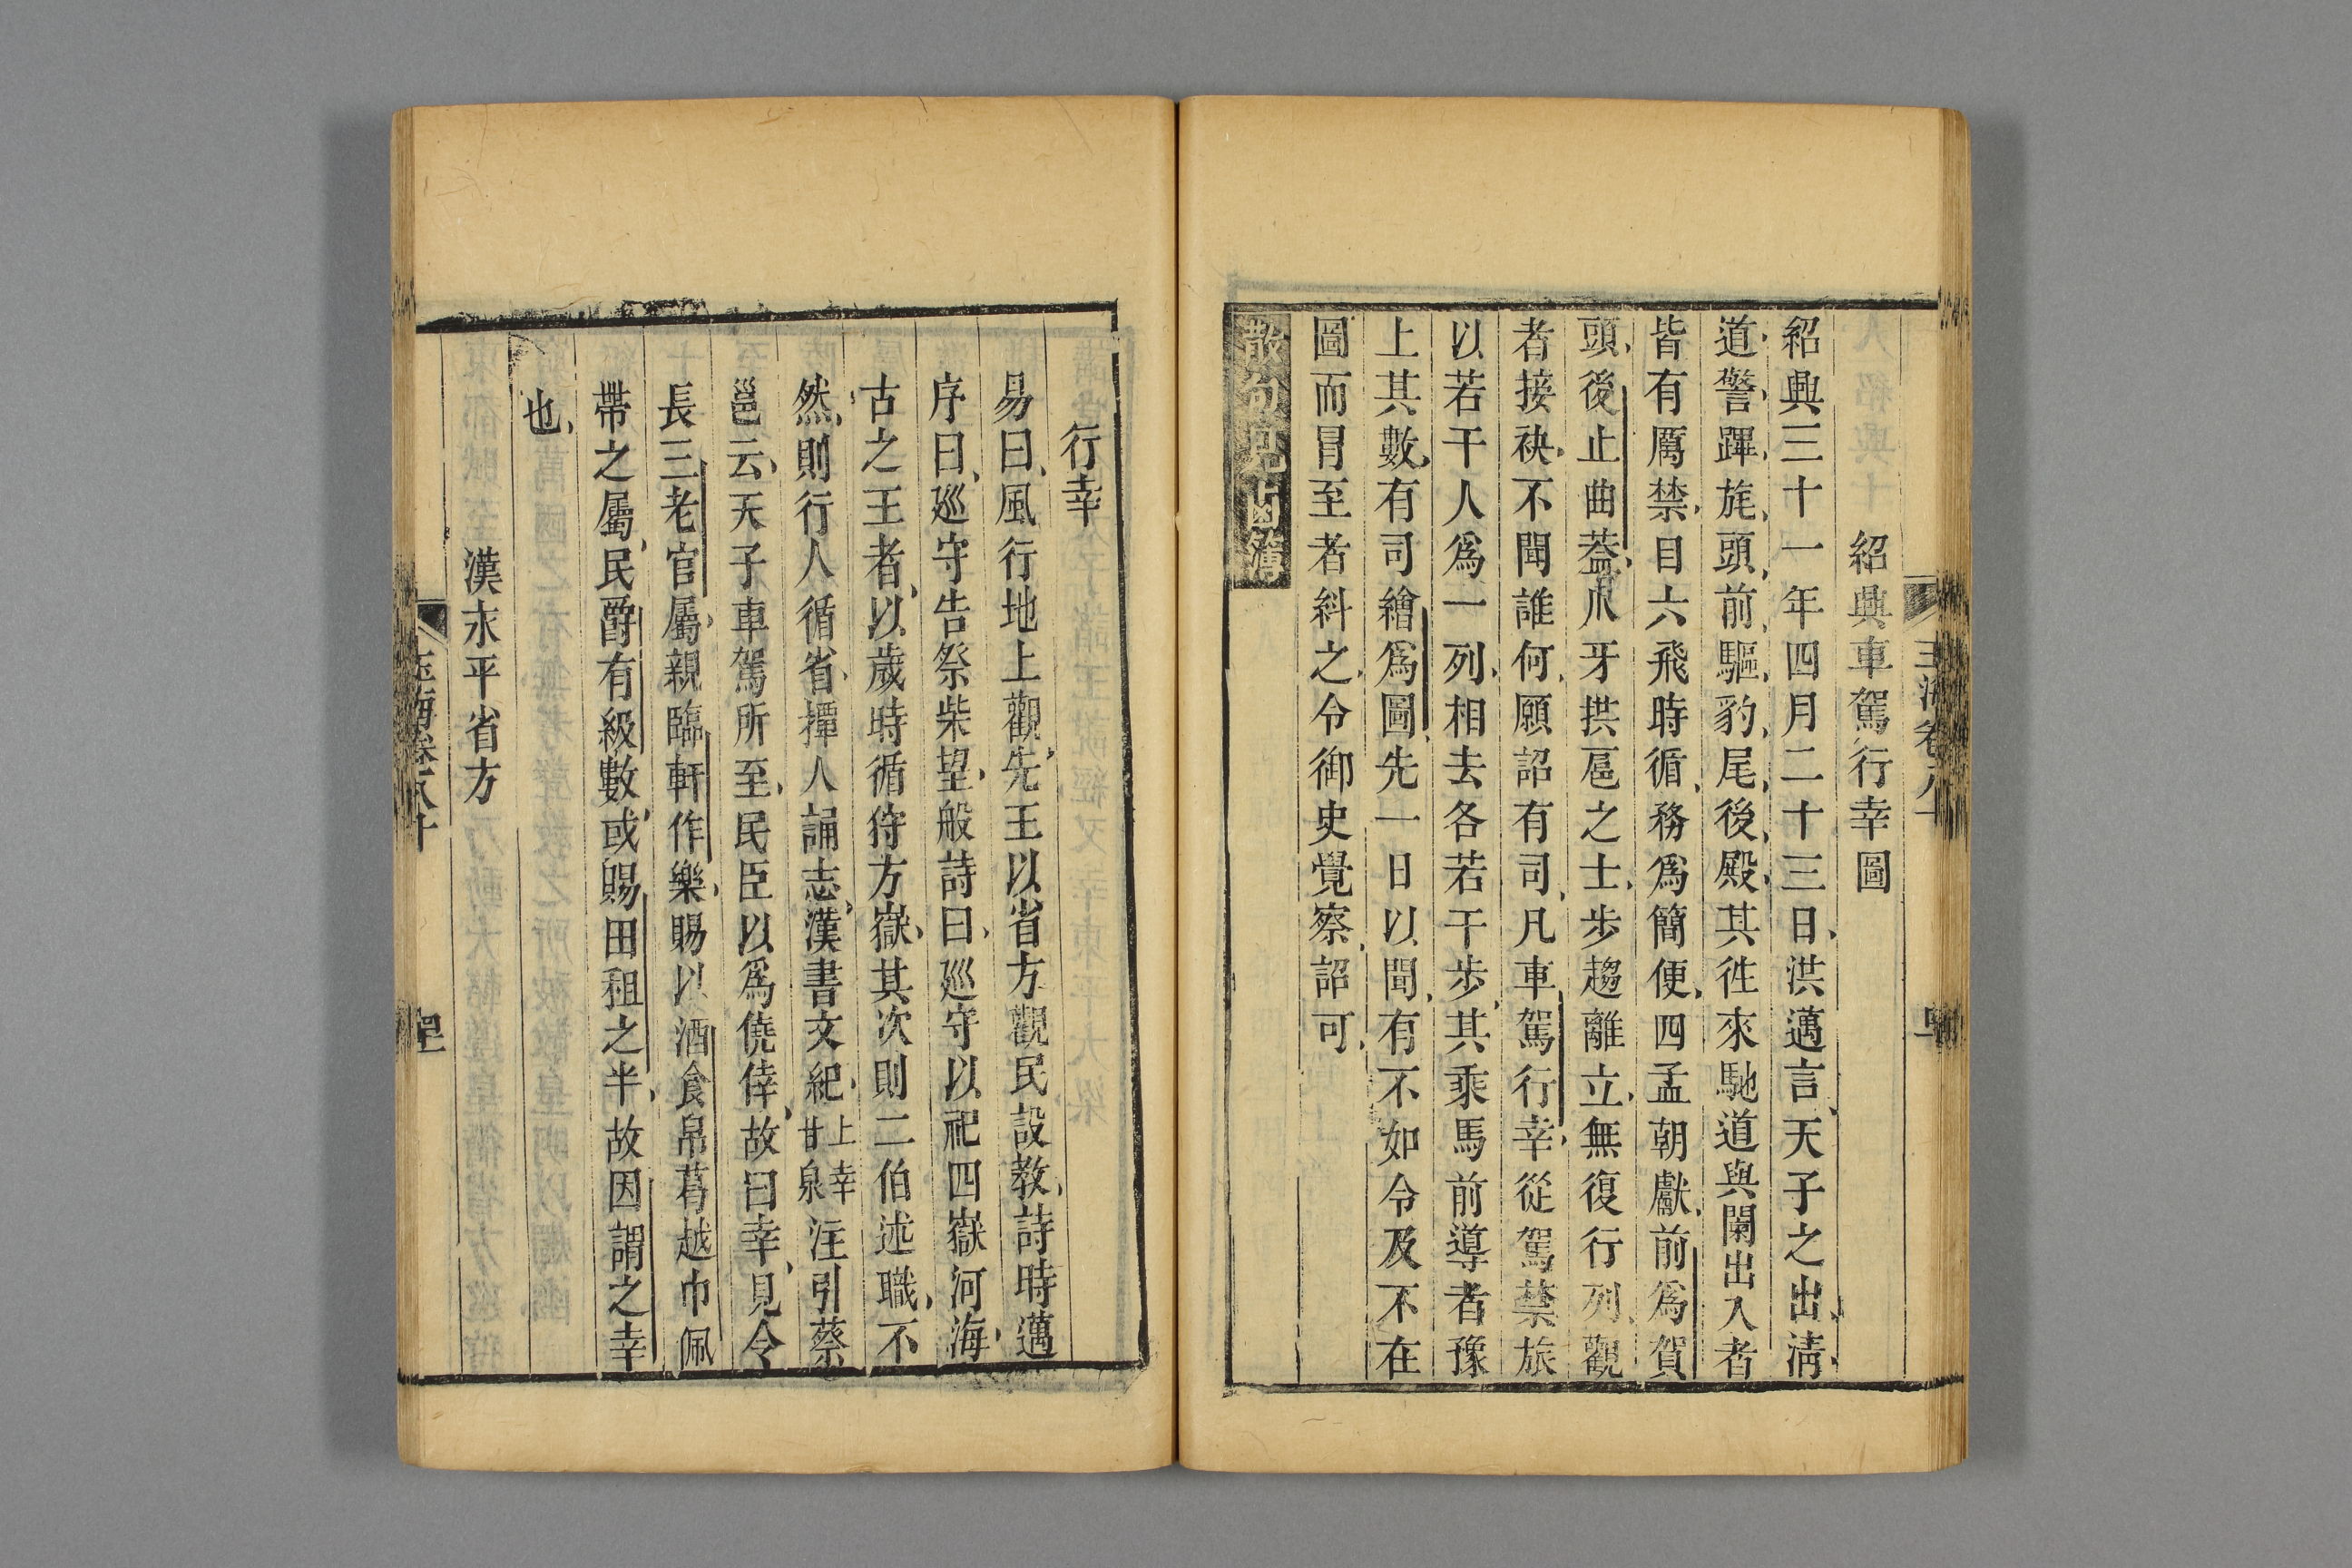 紹興車駕行幸圖
紹興三十一年四月二十三日洪邁言天子之出淸
道警蹕旄頭前驅豹尾後殿其徃來馳道與闌出入者
皆有厲禁目六飛時循務爲簡便四孟朝獻前爲賀
頭後止曲葢爪牙拱扈之士步趨離立無復行列觀
者接袂不聞誰何願詔有司凡車駕行幸從駕禁旅
以若干人爲一列相去各若干步其乘馬前導者豫
上其數有司繪爲圖先一日以聞有不如令及不在
圖而冒至者糾之令御史覺察詔可
散句見鹵簿
行幸
易曰風行地上觀先王以省方觀民設教詩時邁
序曰廵守告祭柴望般詩曰廵守以祀四嶽河海
古之王者以歲時循狩方嶽其次則二伯述職不
然則行人循省撢人誦志漢書文紀上幸甘泉注引蔡
邕云天子車駕所至民臣以爲僥倖故曰幸見令
長三老官屬親臨軒作樂賜以酒食帛葛越巾佩
帶之屬民爵有級數或賜田租之半故因謂之幸
也
漢永平省方